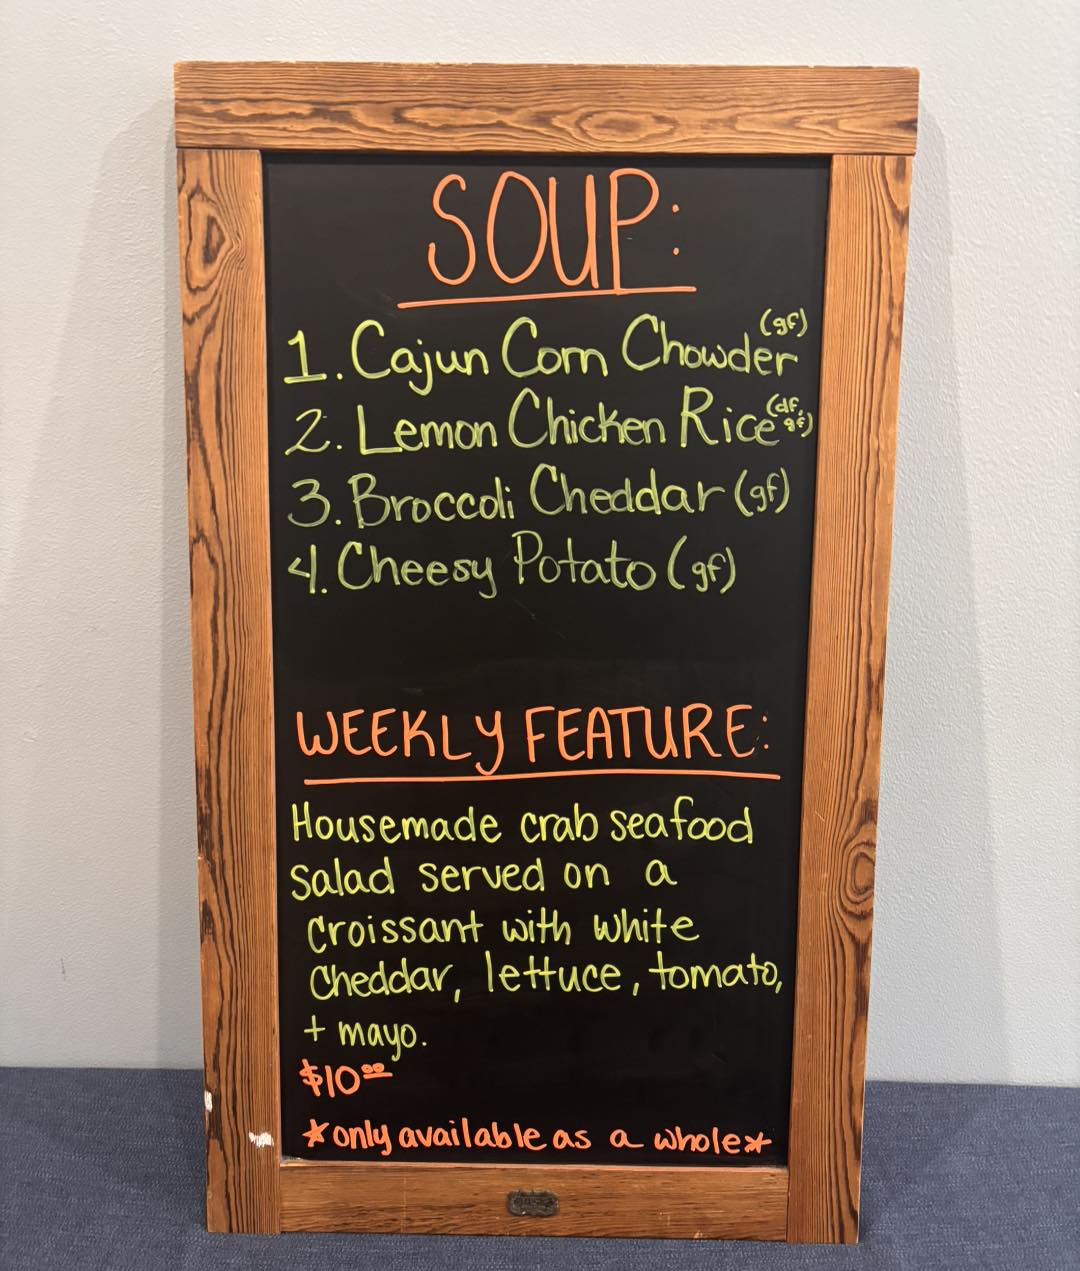 SOUP:
1. Cajun Corn Chowder (gf)
2. Lemon Chicken Rice (df, gf)
3. Broccoli Cheddar (gf)
4. Cheesy Potato (gf)
WEEKLY FEATURE:
Housemade crab seafood
salad served on a
croissant with white
cheddar, lettuce, tomato,
+ mayo.
$10.00
*only available as a whole*